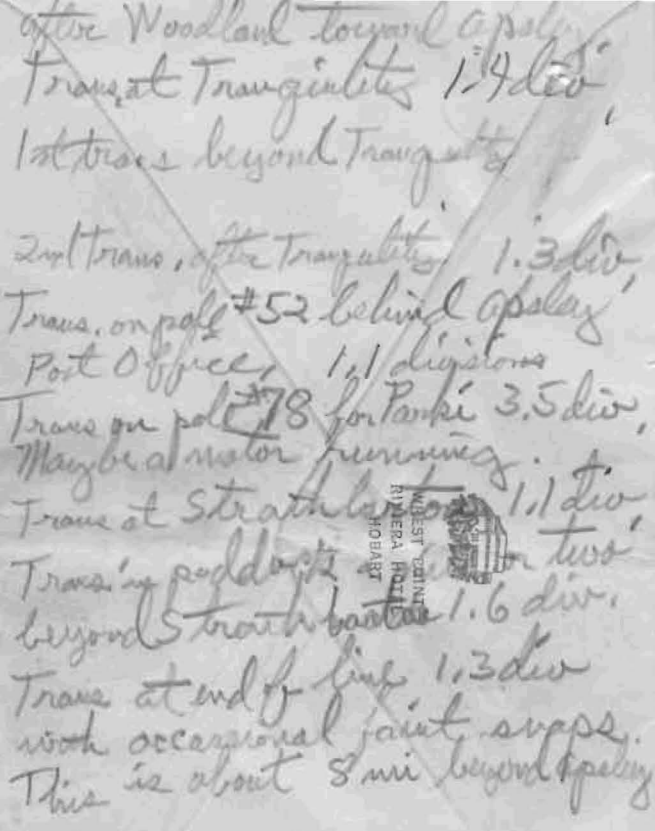 after Woodland toward Apsley
Trans. at Tranquility 1.4 div.
1st trans beyond Tranquility
2nd Trans. after Tranquility 1.3 div.
Trans. on pole #52 behind Apsley
Post Office, 1.1 divisions
Trans on pole #78 for Panki 3.5 div.
Maybe a motor running.
Trans at Strathbarton 1.1 div.
Trans in paddock a or two
beyond Strathbarton 1.6 div.
Trans at end of line 1.3 div
with occassional faint snaps.
This is about 8 mi beyond Apsley
WREST POINT
RIVIERA HOTEL
HOBART